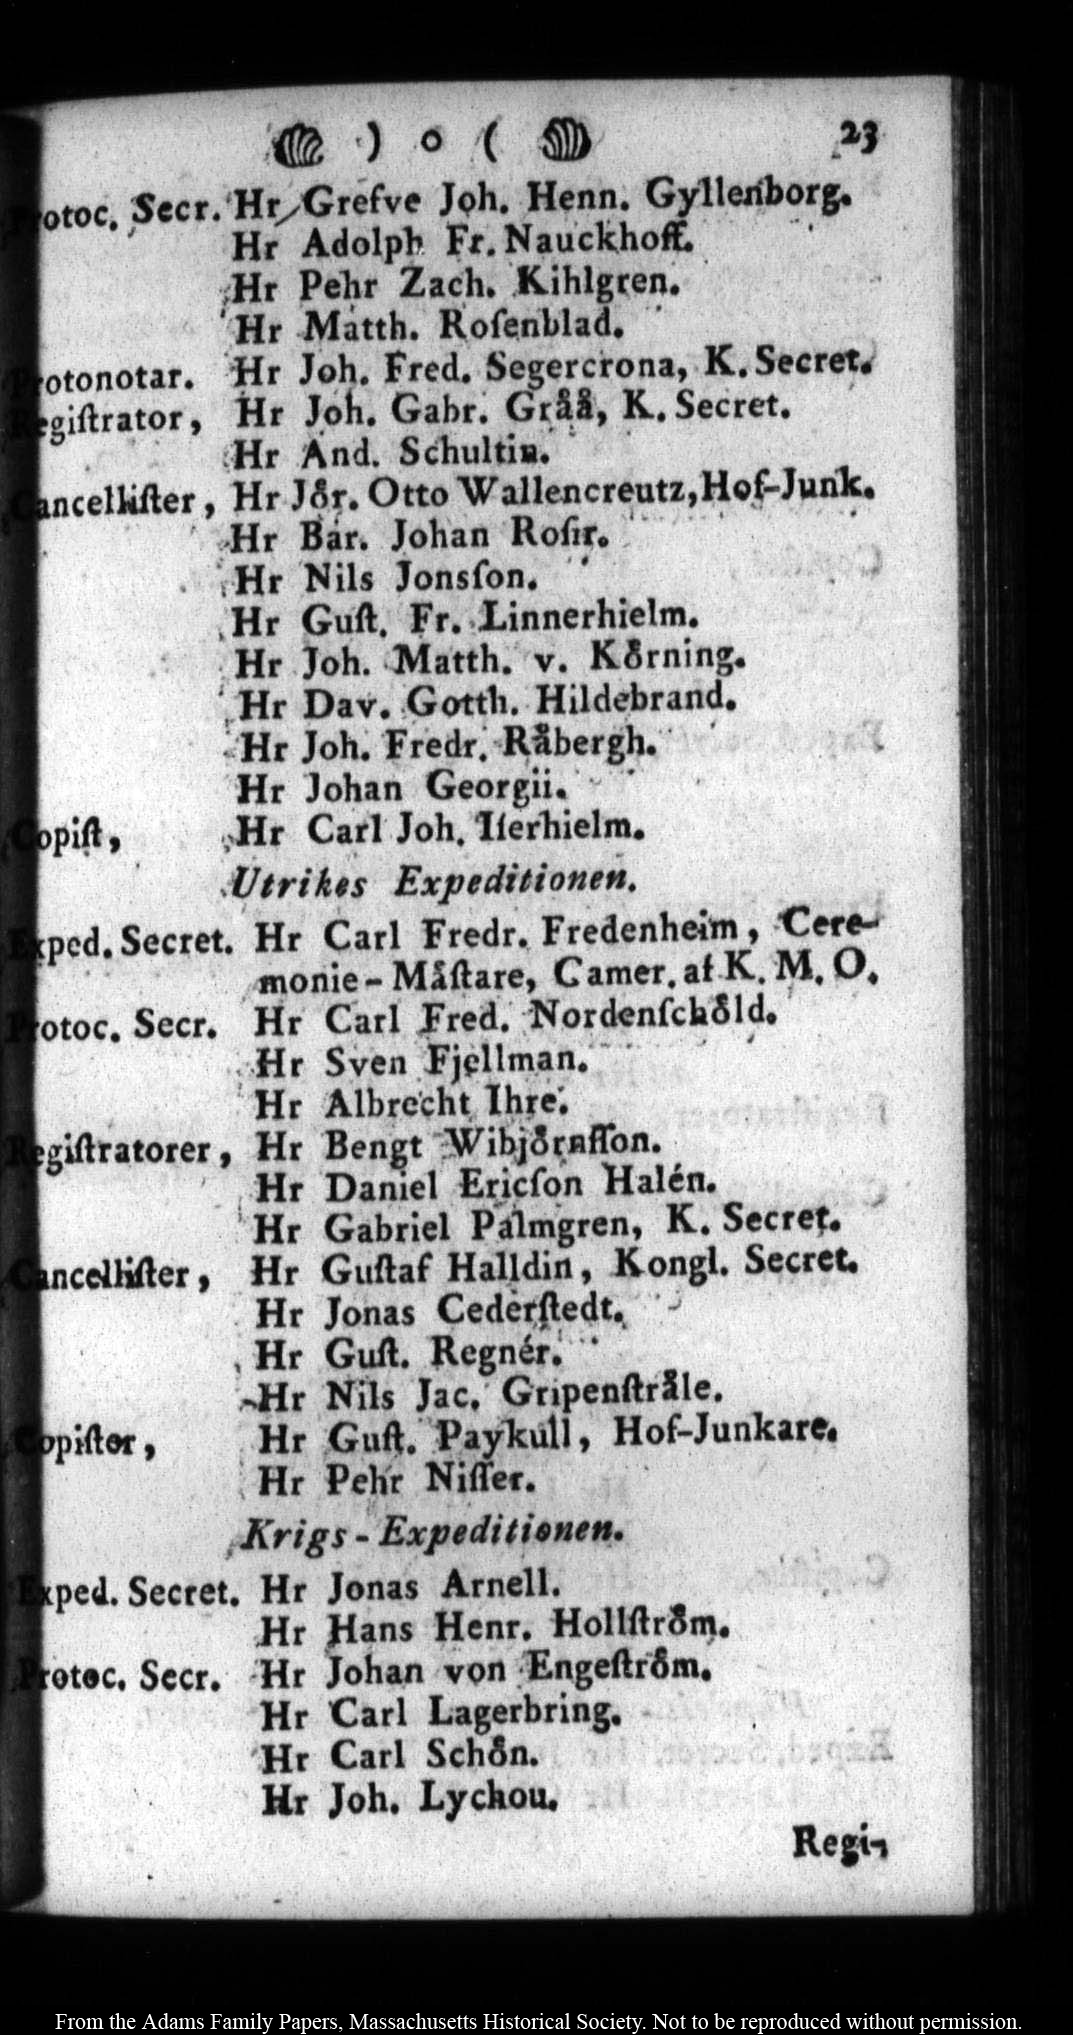 ) o ( 23
Protoc. Secr. Hr Grefve Joh. Henn. Gyllenborg.
Hr Adolph Fr. Nauckhoff.
Hr Pehr Zach. Kihlgren.
Hr Matth. Roſenblad.
Protonotar. Hr Joh. Fred. Segercrona, K. Secret.
Regiſtrator, Hr Joh. Gabr. Gråå, K. Secret.
Hr And. Schultin.
Cancelliſter, Hr Jör. Otto Wallencreutz, Hof-Junk.
Hr Bar. Johan Roſir.
Hr Nils Jonsſon.
Hr Guſt. Fr. Linnerhielm.
Hr Joh. Matth. v. Körning.
Hr Dav. Gotth. Hildebrand.
Hr Joh. Fredr. Råbergh.
Hr Johan Georgii.
Copiſt, Hr Carl Joh. Iſerhielm.
Utrikes Expeditionen.
Exped. Secret. Hr Carl Fredr. Fredenheim, Cere-
monie-Måſtare, Camer. af K. M. O.
Protoc. Secr. Hr Carl Fred. Nordenſchöld.
Hr Sven Fjellman.
Hr Albrecht Ihre.
Regiſtratorer, Hr Bengt Wibjörnſſon.
Hr Daniel Ericſon Halén.
Hr Gabriel Palmgren, K. Secret.
Cancelliſter, Hr Guſtaf Halldin, Kongl. Secret.
Hr Jonas Cederſtedt.
Hr Guſt. Regnér.
Hr Nils Jac. Gripenſtråle.
Copiſter, Hr Guſt. Paykull, Hof-Junkare.
Hr Pehr Niſſer.
Krigs-Expeditionen.
Exped. Secret. Hr Jonas Arnell.
Hr Hans Henr. Hollſtröm.
Protoc. Secr. Hr Johan von Engeſtröm.
Hr Carl Lagerbring.
Hr Carl Schön.
Hr Joh. Lychou.
Regi-
From the Adams Family Papers, Massachusetts Historical Society. Not to be reproduced without permission.